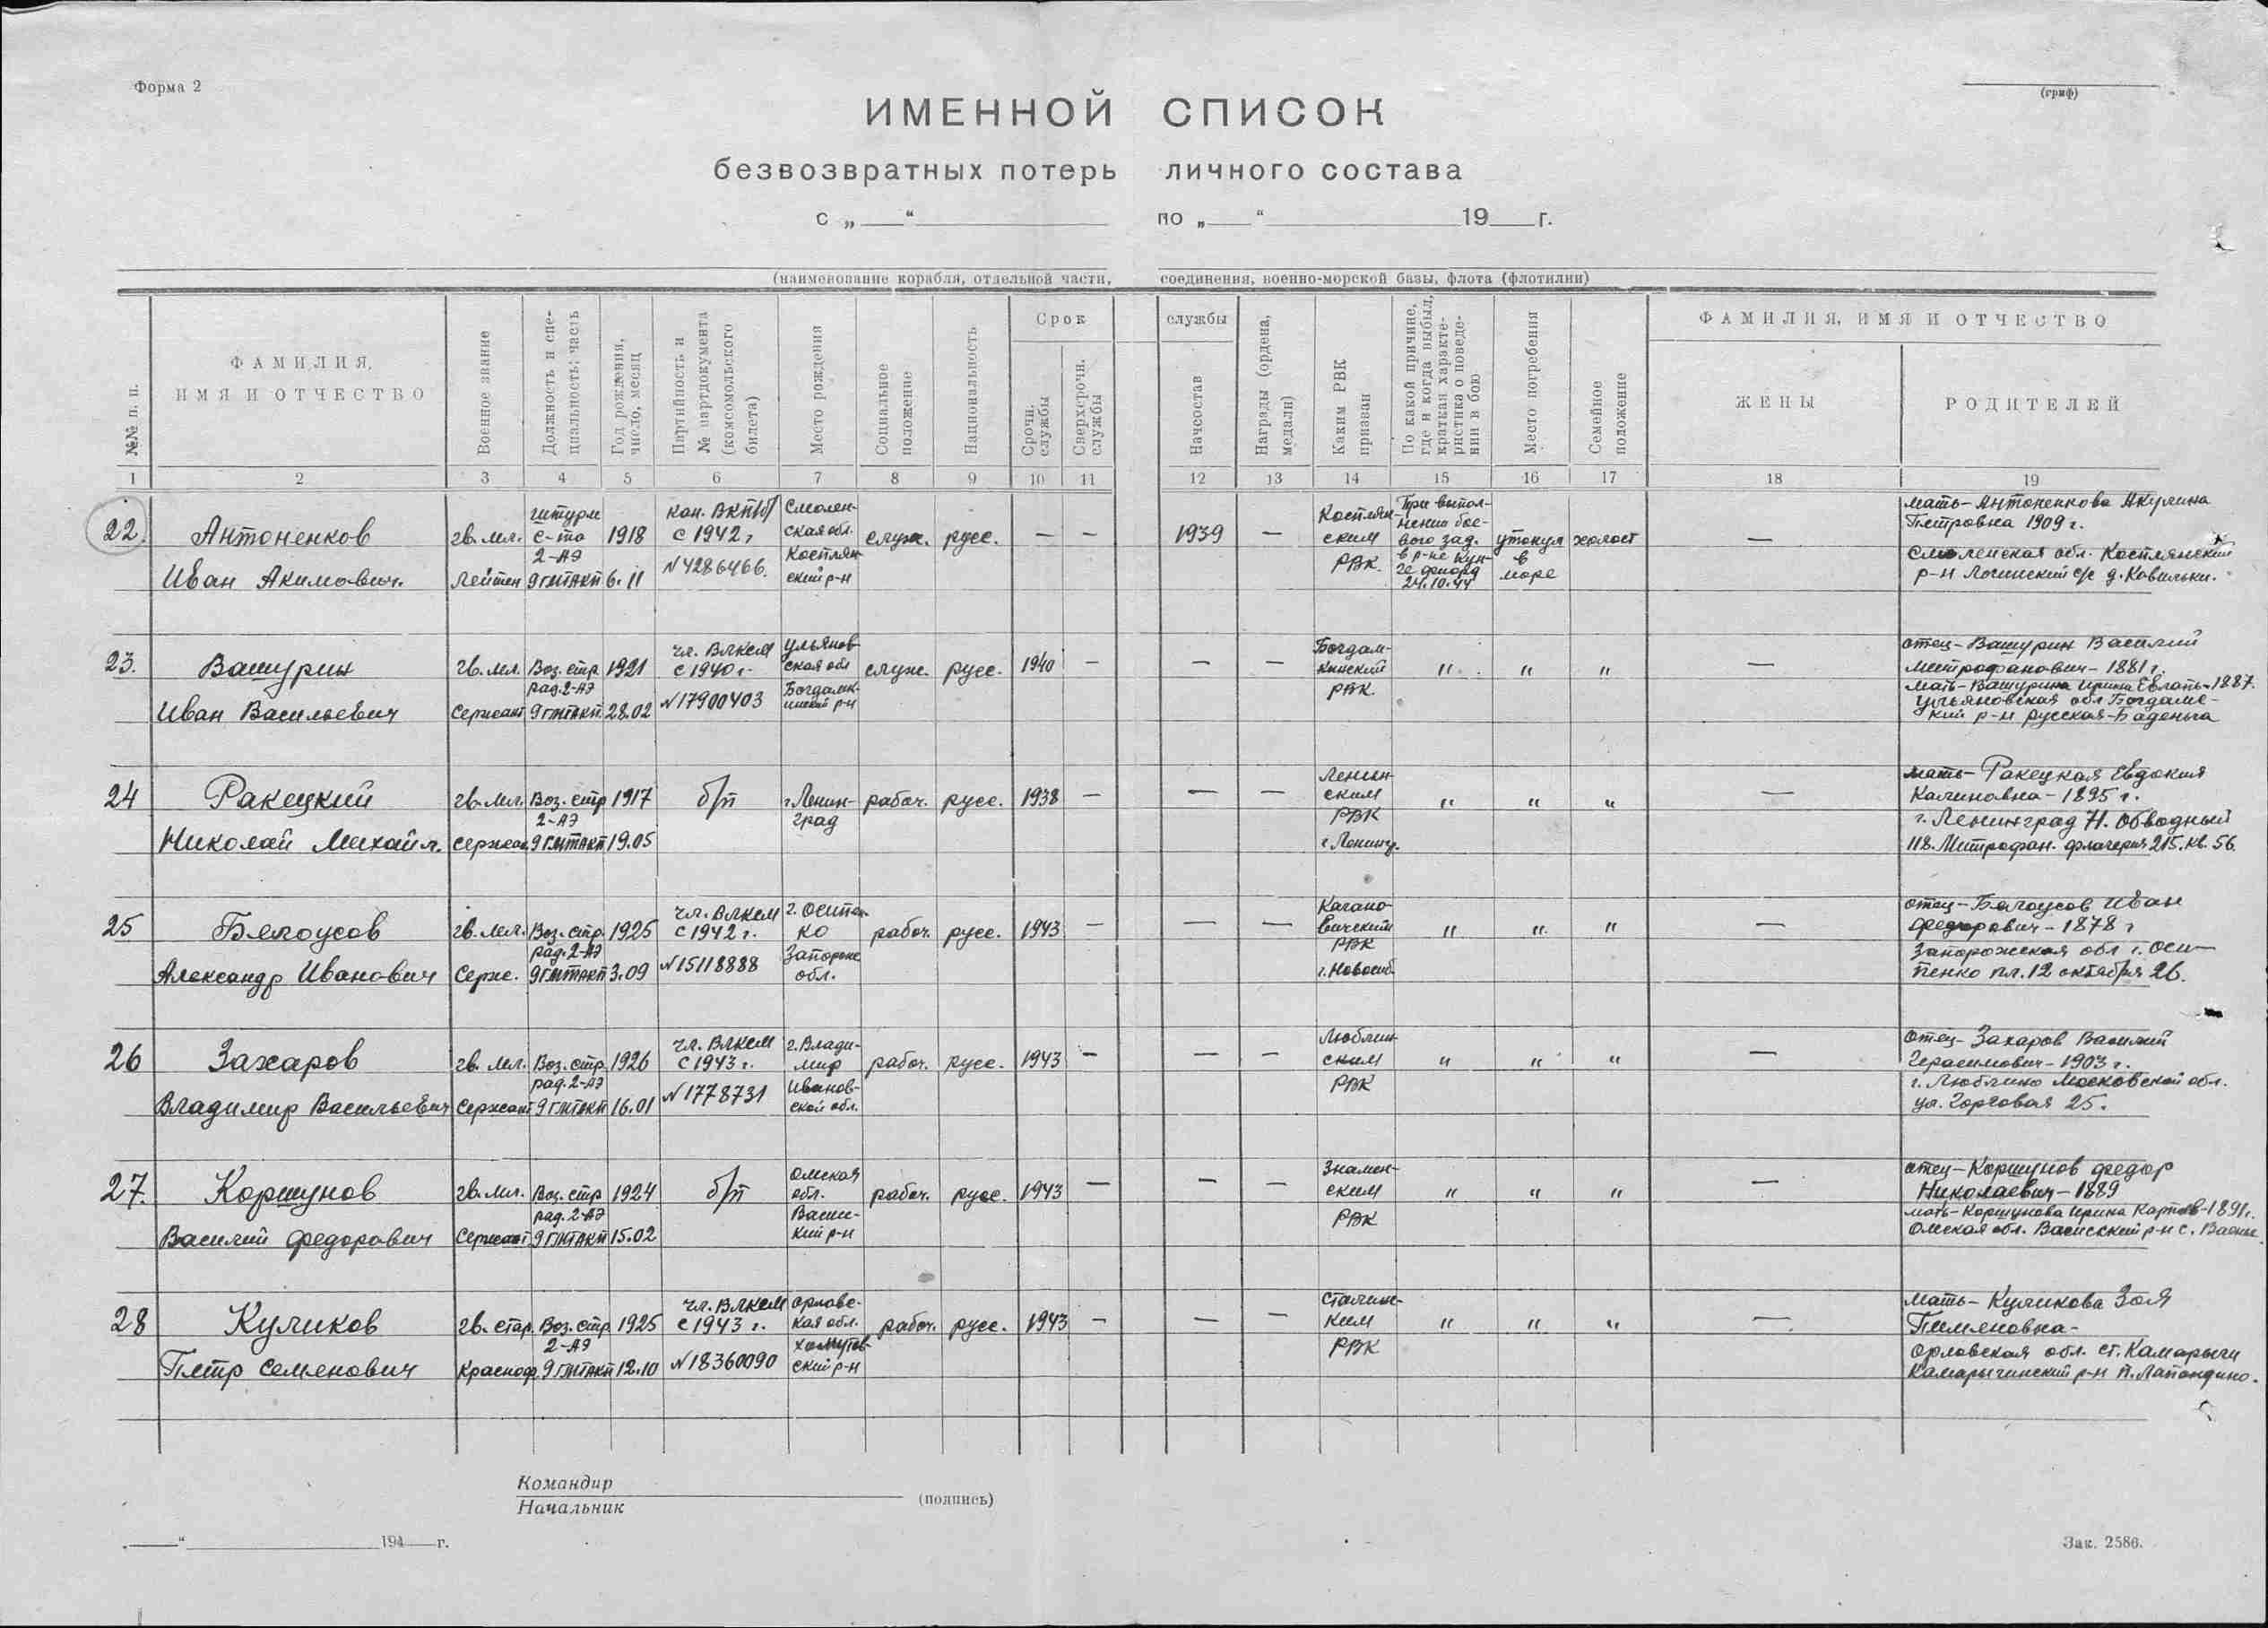 Форма 2
(гриф)
ИМЕННОЙ СПИСОК
безвозвратных потерь личного состава
с „ “ по „ “ 19 г.
(наименование корабля, отдельной части, соединения, военно-морской базы, флота (флотилии)
№№ п. п.
ФАМИЛИЯ,
ИМЯ И ОТЧЕСТВО
Военное звание
Должность и спе-
циальность; часть
Год рождения,
число, месяц
Партийность и
№ партдокумента
(комсомольского
билета)
Место рождения
Социальное
положение
Национальность
Срок службы
Срочн.
службы
Сверхсрочн.
службы
Начсостав
Награды (ордена,
медали)
Каким РВК
призван
По какой причине,
где и когда выбыл,
краткая характе-
ристика о поведе-
нии в бою
Место погребения
Семейное
положение
ФАМИЛИЯ, ИМЯ И ОТЧЕСТВО
ЖЕНЫ
РОДИТЕЛЕЙ
1 2 3 4 5 6 7 8 9 10 11 12 13 14 15 16 17 18 19
22.
Антоненков
Иван Акимович.
гв. мл.
Лейтен
штурм
с-та
2-АЭ
9 ГМТАКП
1918
6.11
кан. ВКП/б/
с 1942 г
№4286466.
Смолен-
ская обл.
Касплян
ский р-н
служ.
русс.
— —
1939
—
Касплян-
ским
РВК.
При выпол-
нении бое-
вого зад.
в р-не Кун-
ге фиорд
24.10.44
утонул
в
море
холост
—
мать-Антоненкова Акулина
Петровна 1909 г.
Смоленская обл. Касплянский
р-н с/с д.
23.
Вашурин
Иван Васильевич
гв. мл.
Сержант
Воз. стр.
рад. 2-АЭ
9 ГМТАКП
1921
28.02
чл. ВЛКСМ
с 1940 г.
№17900403
Ульянов-
ская обл
р-н
служ.
русс.
1940
—
— —
РВК.
" " "
—
отец-Вашурин Василий
Митрофанович-1881 г.
мать-Вашурина Ирина 1887.
Ульяновская обл
р-н русская-
24
Ракецкий
Николай Михайл.
гв. мл.
Сержан.
Воз. стр
2-АЭ
9 ГМТАКП
1917
19.05
б/п
г. Ленин-
град
рабоч.
русс.
1938
—
— —
Ленин-
ским
РВК
г. Ленингр.
" " "
—
мать-Ракецкая Евдокия
Калиновна-1895 г.
г. Ленинград Н. Обводный
118. Митрофан. 215. кв. 56.
25
Белоусов
Александр Иванович
гв. мл.
Серж.
Воз. стр.
рад. 2-АЭ
9 ГМТАКП
1925
3.09
чл. ВЛКСМ
с 1942 г.
№15118888
г. Осипен-
ко
Запорож
обл.
рабоч.
русс.
1943
—
— —
Кагано-
вичский
РВК
г. Новосиб.
" " "
—
отец-Белоусов Иван
Федорович-1878 г
Запорожская обл г. Оси-
пенко пл. 12 октября 26.
26
Захаров
Владимир Васильевич
гв. мл.
Сержант
Воз. стр.
рад. 2-АЭ
9 ГМТАКП
1926
16.01
чл. ВЛКСМ
с 1943 г.
№1778731
г. Влади-
мир
Иванов-
ской обл.
рабоч.
русс.
1943
—
— —
Люблин-
ским
РВК
" " "
—
отец-Захаров Василий
Герасимович-1903 г.
г. Люблино Московской обл.
ул. Торговая 25.
27.
Коршунов
Василий Федорович
гв. мл.
Сержант
Воз. стр
рад. 2-АЭ
9 ГМТАКП
1924
15.02
б/п
Омская
обл.
Васис-
кий р-н
рабоч.
русс.
1943
—
— —
Знамен-
ским
РВК
" " "
—
отец-Коршунов Федор
Николаевич-1889
мать-Коршунова Ирина Карпов-1891 г.
Омская обл. Васисский р-н с.
28
Куликов
Петр Семенович
гв. стар.
Краснофл
Воз. стр
2-АЭ
9 ГМТАКП
1925
12.10
чл. ВЛКСМ
с 1943 г.
№18360090
Орловс-
кая обл.
Хомутов-
ский р-н
рабоч.
русс.
1943
—
— —
Сталин-
ким
РВК
" " "
—
мать-Куликова Зоя
Пименовна-
Орловская обл. ст. Камарычи
Камарычинский р-н п. Лапандино.
Командир
Начальник
(подпись)
“ 194 г.
Зак. 2586.